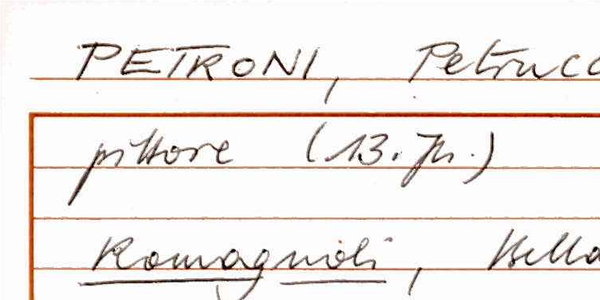 PETRONI, Petrucc
pittore (13. Jh.)
Romagnoli, Bella